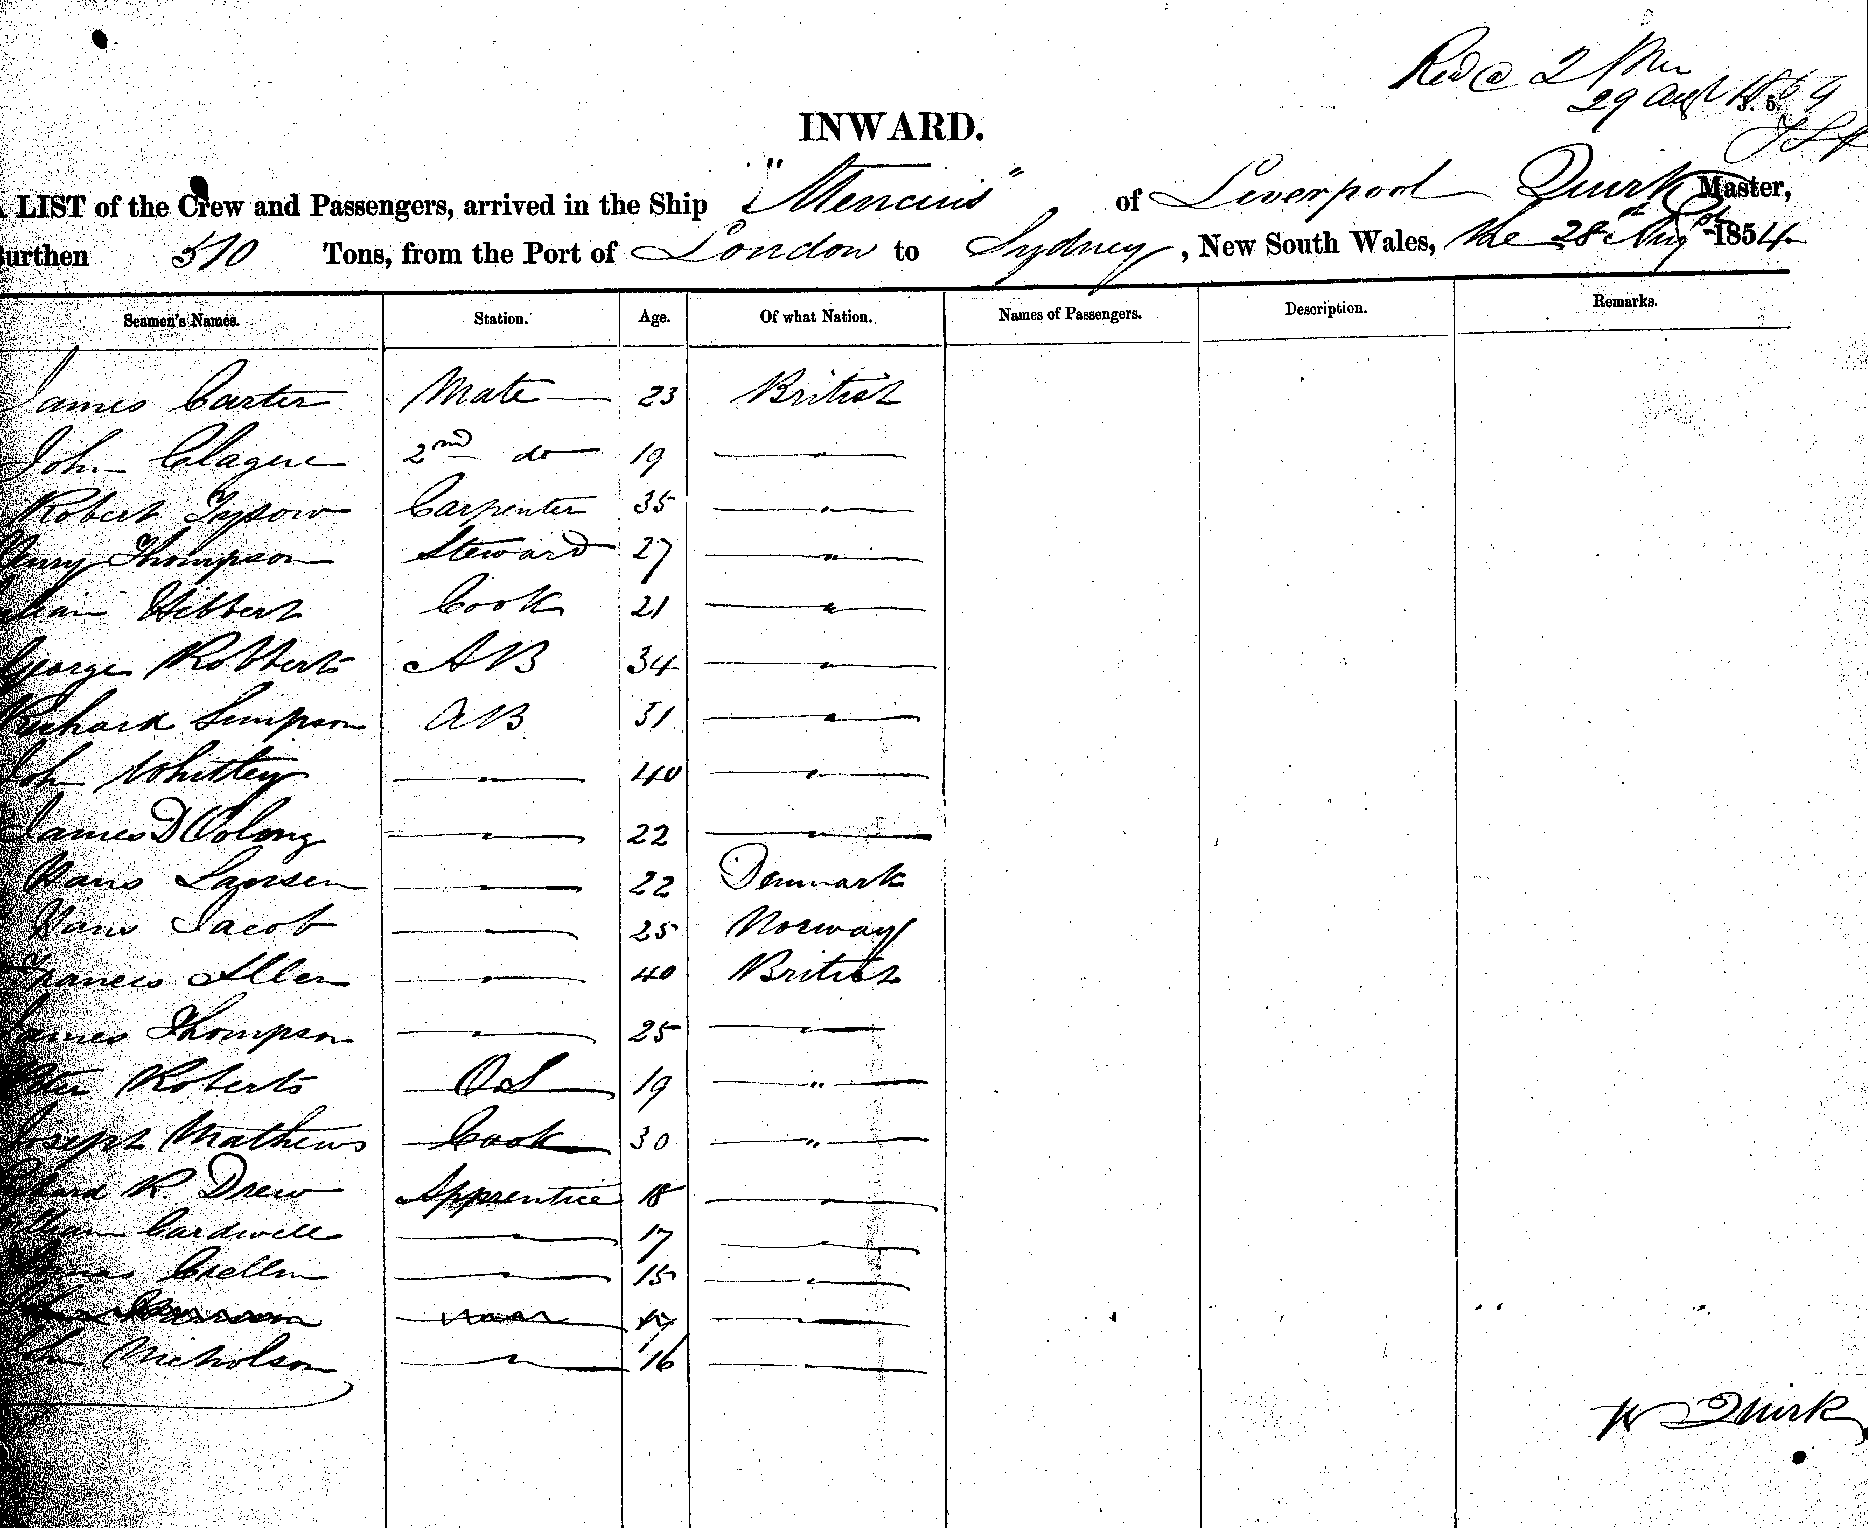 29 Aug
INWARD.
LIST of the Crew and Passengers, arrived in the Ship "Mencius" of Liverpool Quirk Master,
Burthen 510 Tons, from the Port of London to Sydney, New South Wales, the 28th Augst 1854
Seamen's Names. Station. Age. Of what Nation. Names of Passengers. Description. Remarks.
James Carter Mate — 23 British
John Clague 2nd do — 19 — " —
Robert Carpenter 35 — " —
Henry Thompson Steward 27 — " —
Hibbert Cook 21 — " —
George Robberts AB 34 — " —
Richard Simpson AB 31 — " —
John Whittey — " — 40 — " —
James — " — 22 — " —
Hans — " — 22 Denmark
Hans Jacob — " — 25 Norway
Francis Allen — " — 40 British
James Thompson — " — 25 — " —
Peter Roberts OS 19 — " —
Joseph Mathews Cook 30 — " —
Richard R Drew Apprentice 18 — " —
William Cardwell — " — 17 — " —
Crellin — " — 15 — " —
17 — " —
John Nicholson — " — 16 — " —
W Quirk